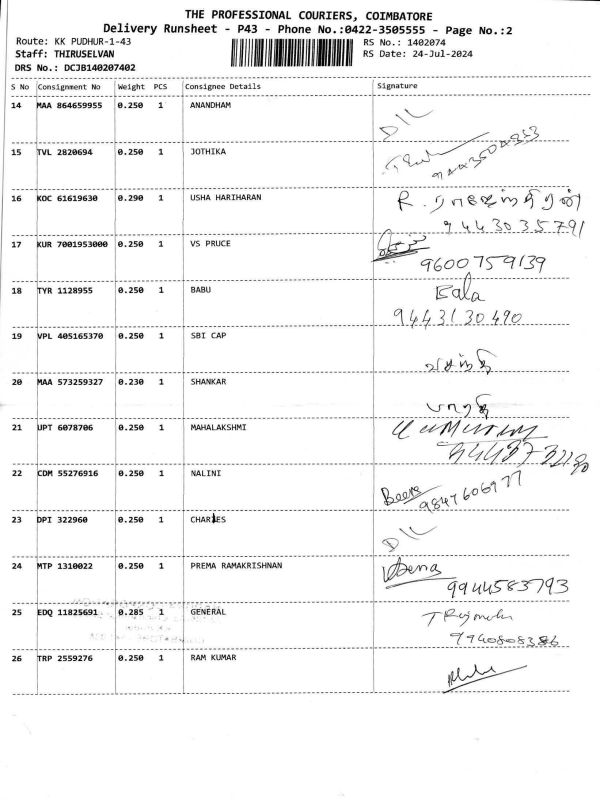 THE PROFESSIONAL COURIERS, COIMBATORE
Delivery Runsheet - P43 - Phone No.:0422-3505555 - Page No.:2
Route: KK PUDHUR-1-43 RS No.: 1402074
Staff: THIRUSELVAN RS Date: 24-Jul-2024
DRS No.: DCJB140207402
S No Consignment No Weight PCS Consignee Details Signature
14 MAA 864659955 0.250 1 ANANDHAM
D/L
15 TVL 2820694 0.250 1 JOTHIKA
16 KOC 61619630 0.290 1 USHA HARIHARAN
R.
9443035791
17 KUR 7001953000 0.250 1 VS PRUCE
9600759139
18 TYR 1128955 0.250 1 BABU
Kala
9443130490
19 VPL 405165370 0.250 1 SBI CAP
வசந்தி
20 MAA 573259327 0.230 1 SHANKAR
பாரதி
21 UPT 6078706 0.250 1 MAHALAKSHMI
22 CDM 55276916 0.250 1 NALINI
9847606977
23 DPI 322960 0.250 1 CHARLES
D/L
24 MTP 1310022 0.250 1 PREMA RAMAKRISHNAN
9944583793
25 EDQ 11825691 0.285 1 GENERAL
9940808386
26 TRP 2559276 0.250 1 RAM KUMAR